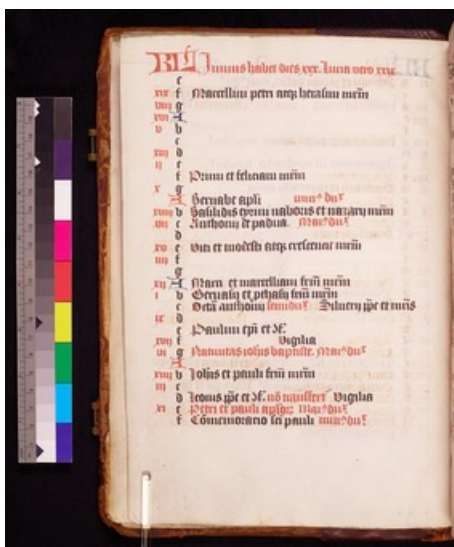 KL Junius habet dies xxx. Luna vero xxix
e
xix f Marcellini petri atq herasmi mrm
viii g
xvi A
v b
c
xiii d
ii e
f Primi et feliciani mrm
x g
A Bernabe apli min9 du
xviii b Basilidis cyrini naboris et nazarii mrm
vii c Anthonii de padua. Mai9 du
d
xv e Viti et modesti atq crescencie mrm
iiii f
g
xii A Marci et marcelliani frm mrm
i b Gervasii et frm mrm
c Octa anthonii semidu Silverii pp et mris
ix d
e Paulini epi et cf
xvii f Vigilia
vi g Nativitas iohis baptiste. Mai9 du
A
xiiii b Johis et pauli frm mrm
iii c
d Leonis pp et cf. no transfert Vigilia
xi e Petri et pauli aplor Mai9 du
f Comemoratio sci pauli min9 du